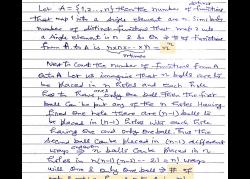 Let A = {1,2,...,n} then the number of distinct functions
that map 1 into a single element are n. Similarly
number of distinct functions that map 2 into
a single element is n & so on # of functions
from A to A is n×n×...×n = nⁿ
n times
Next to count the number of functions from A
onto A let us imagine that n balls are to
be placed in n holes and each hole
has to have one and only one ball then the first
ball can be put any of the n holes. Having
fixed one hole there are (n-1) balls to
be placed in (n-1) holes with each hole
having one and only one ball. Thus the
second ball can be placed in (n-1) different
ways n balls can be placed in n
holes in n(n-1)(n-2)...2·1 = n! ways
with one & only one ball ⇒ # of